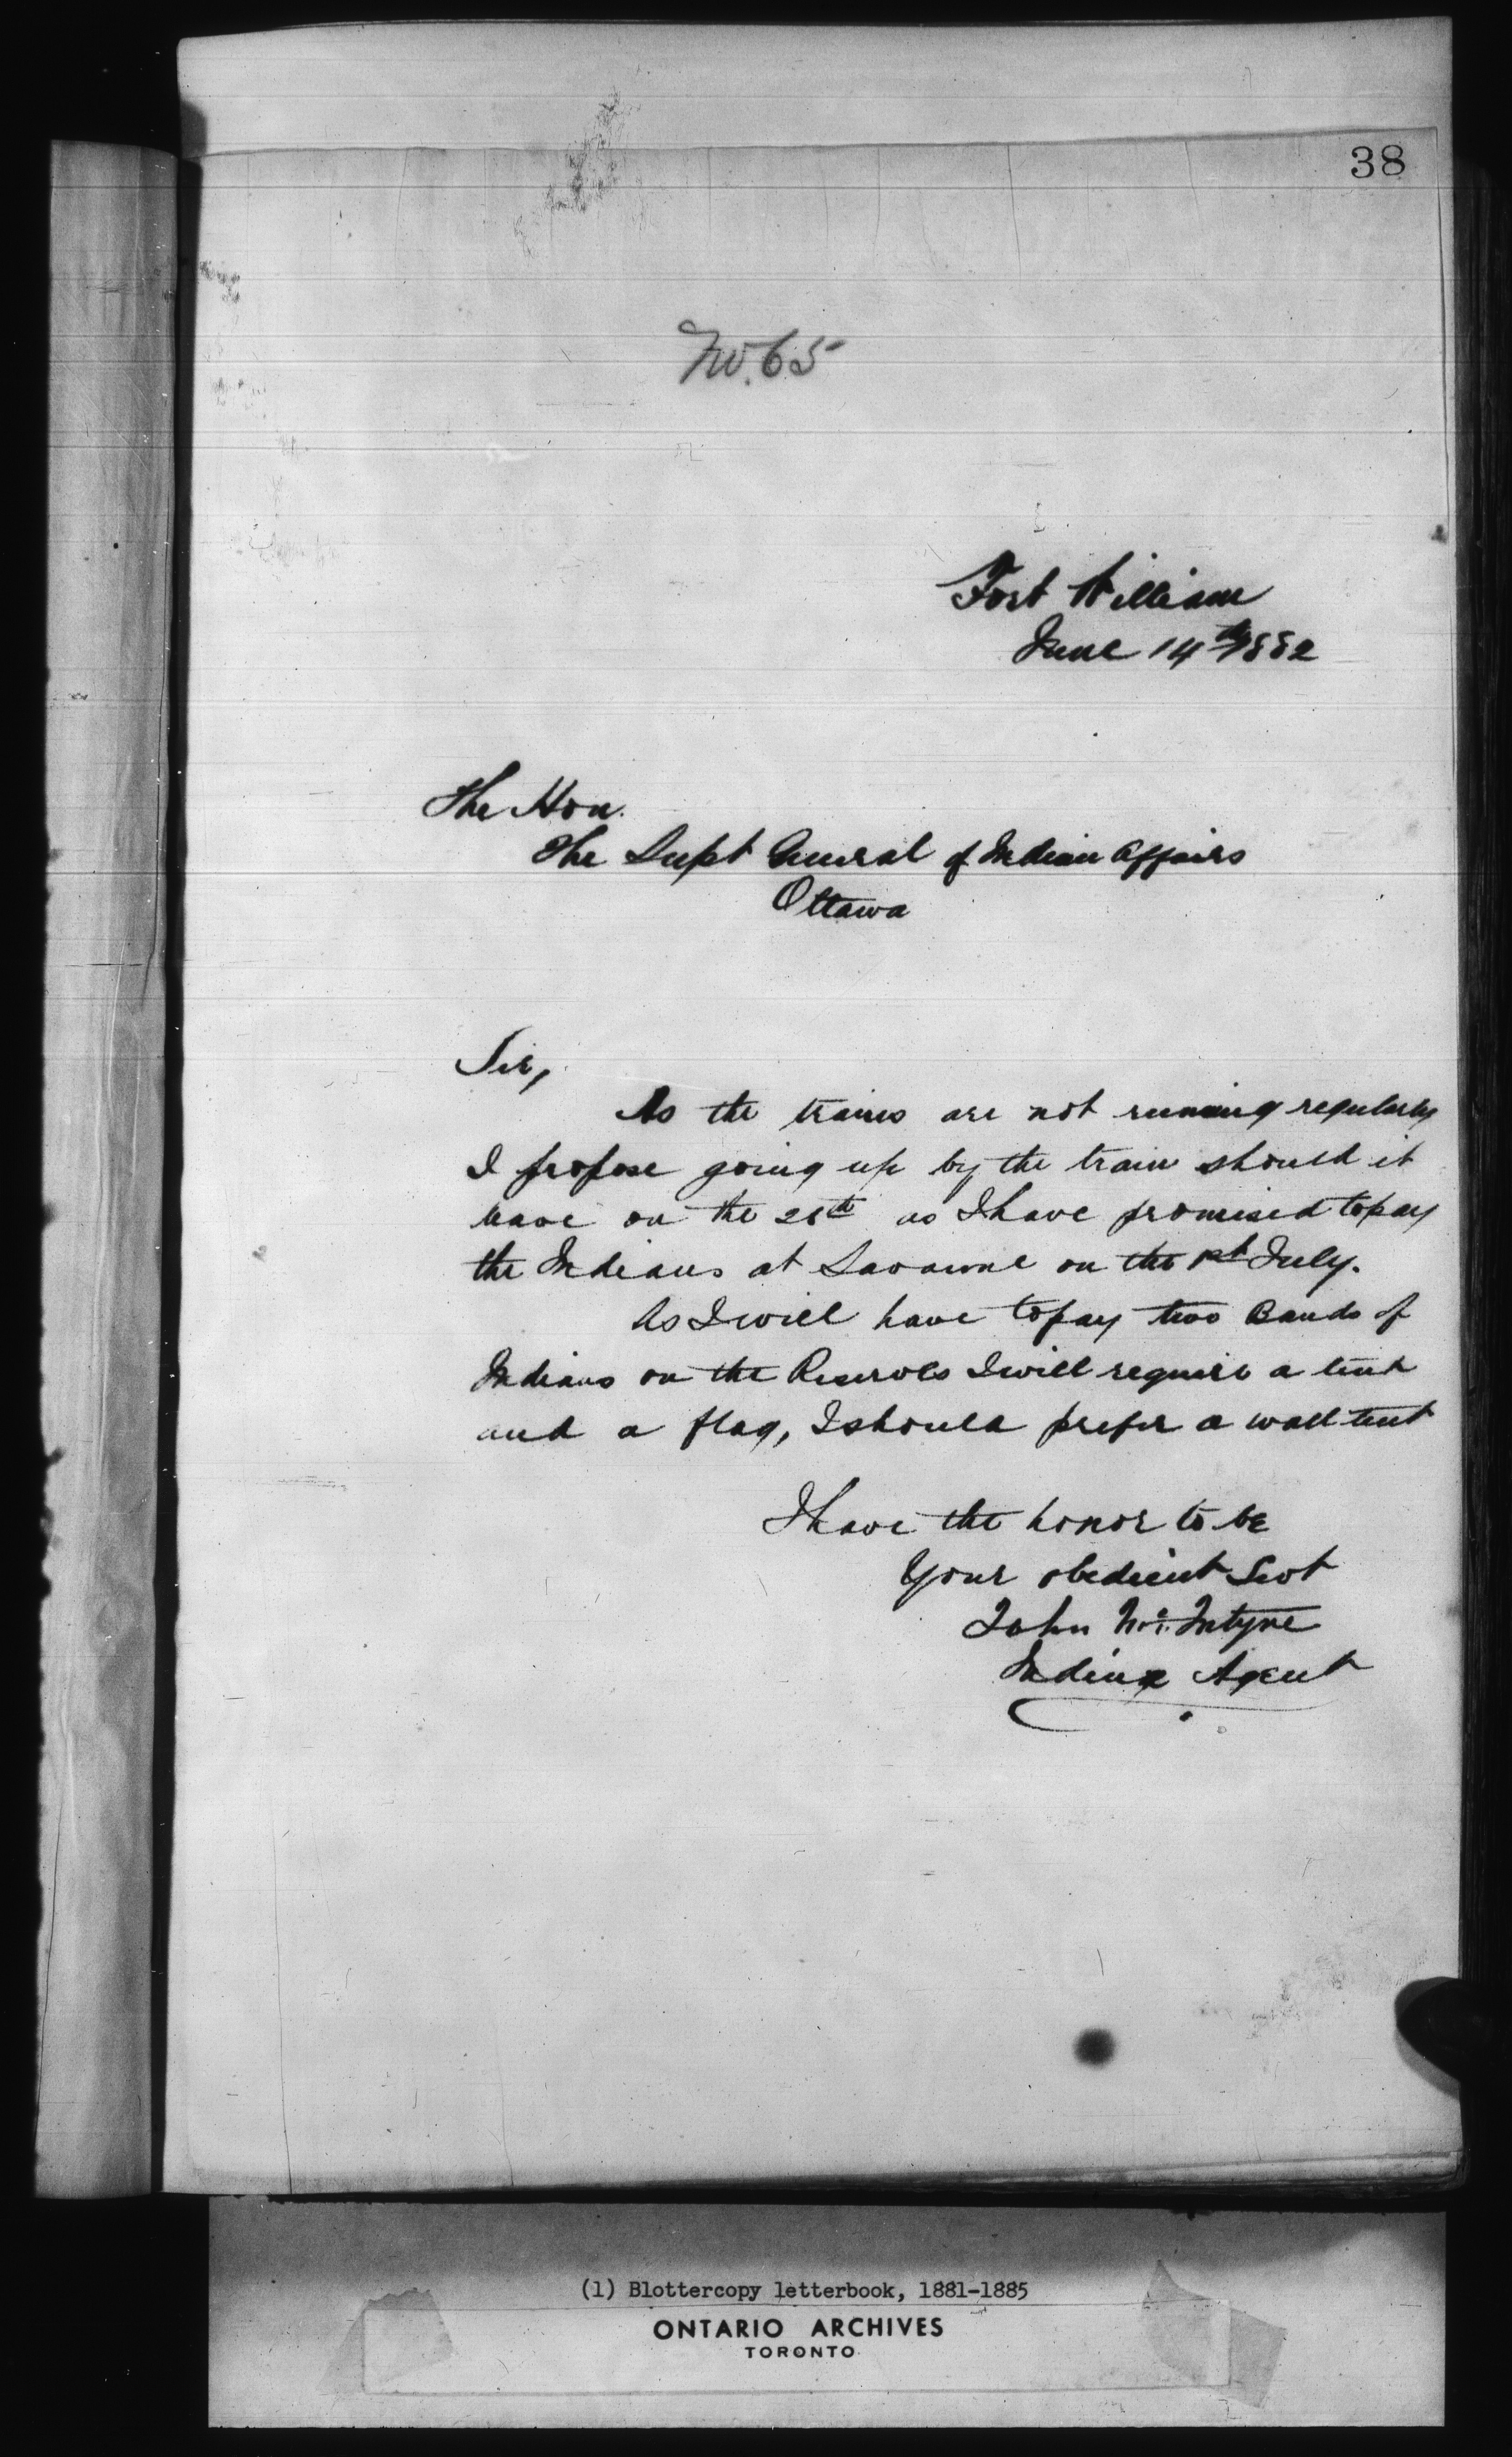 38
No. 65
Fort William
June 14th 1882
The Hon.
The Supt General of Indian Affairs
Ottawa
Sir,
As the trains are not running regularly
I propose going up by the train should it
leave on the 28th as I have promised to pay
the Indians at Savanne on the 1st July.
As I will have to pay two Bands of
Indians on the Reserves I will require a tent
and a flag, I should prefer a wall tent
I have the honor to be
Your obedient Servt
John McIntyre
Indian Agent
(1) Blottercopy letterbook, 1881-1885
ONTARIO ARCHIVES
TORONTO